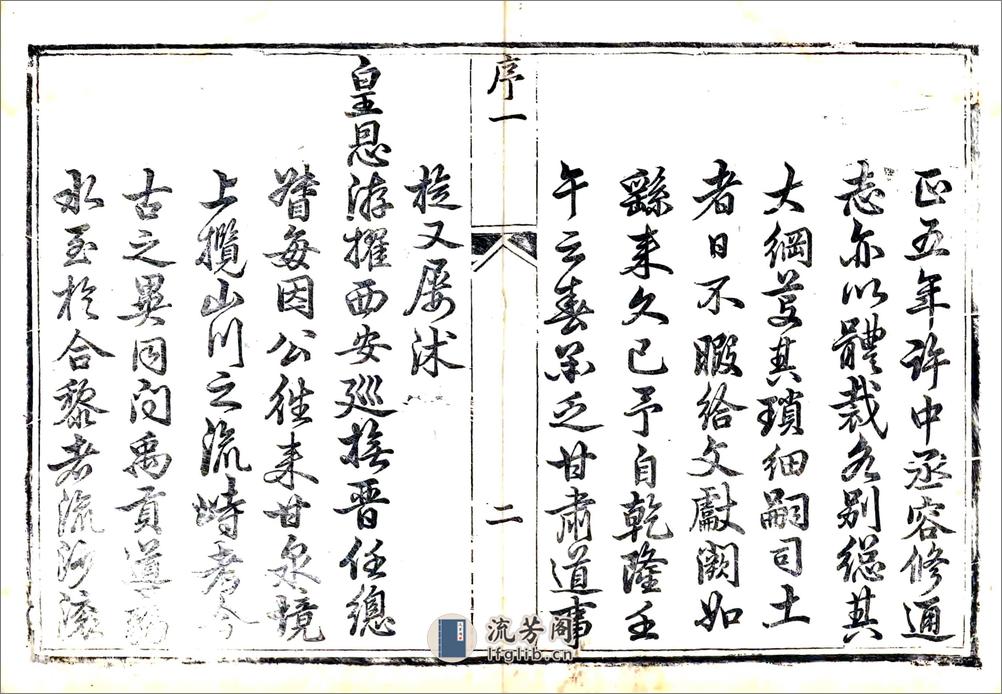 正五年許中丞容修通
志亦以體裁各別總其
大綱芟其瑣細嗣司土
者日不暇給文獻闕如
繇来久已予自乾隆壬
午之春承乏甘肅道事
序一
二
旋又屡沭
皇恩洊擢西安廵撫晉任總
督每因公往来甘泉境
上攬山川之流峙考今
古之異同问禹貢道弱
水至於合黎者流沙
流芳阁
lfglib.cn